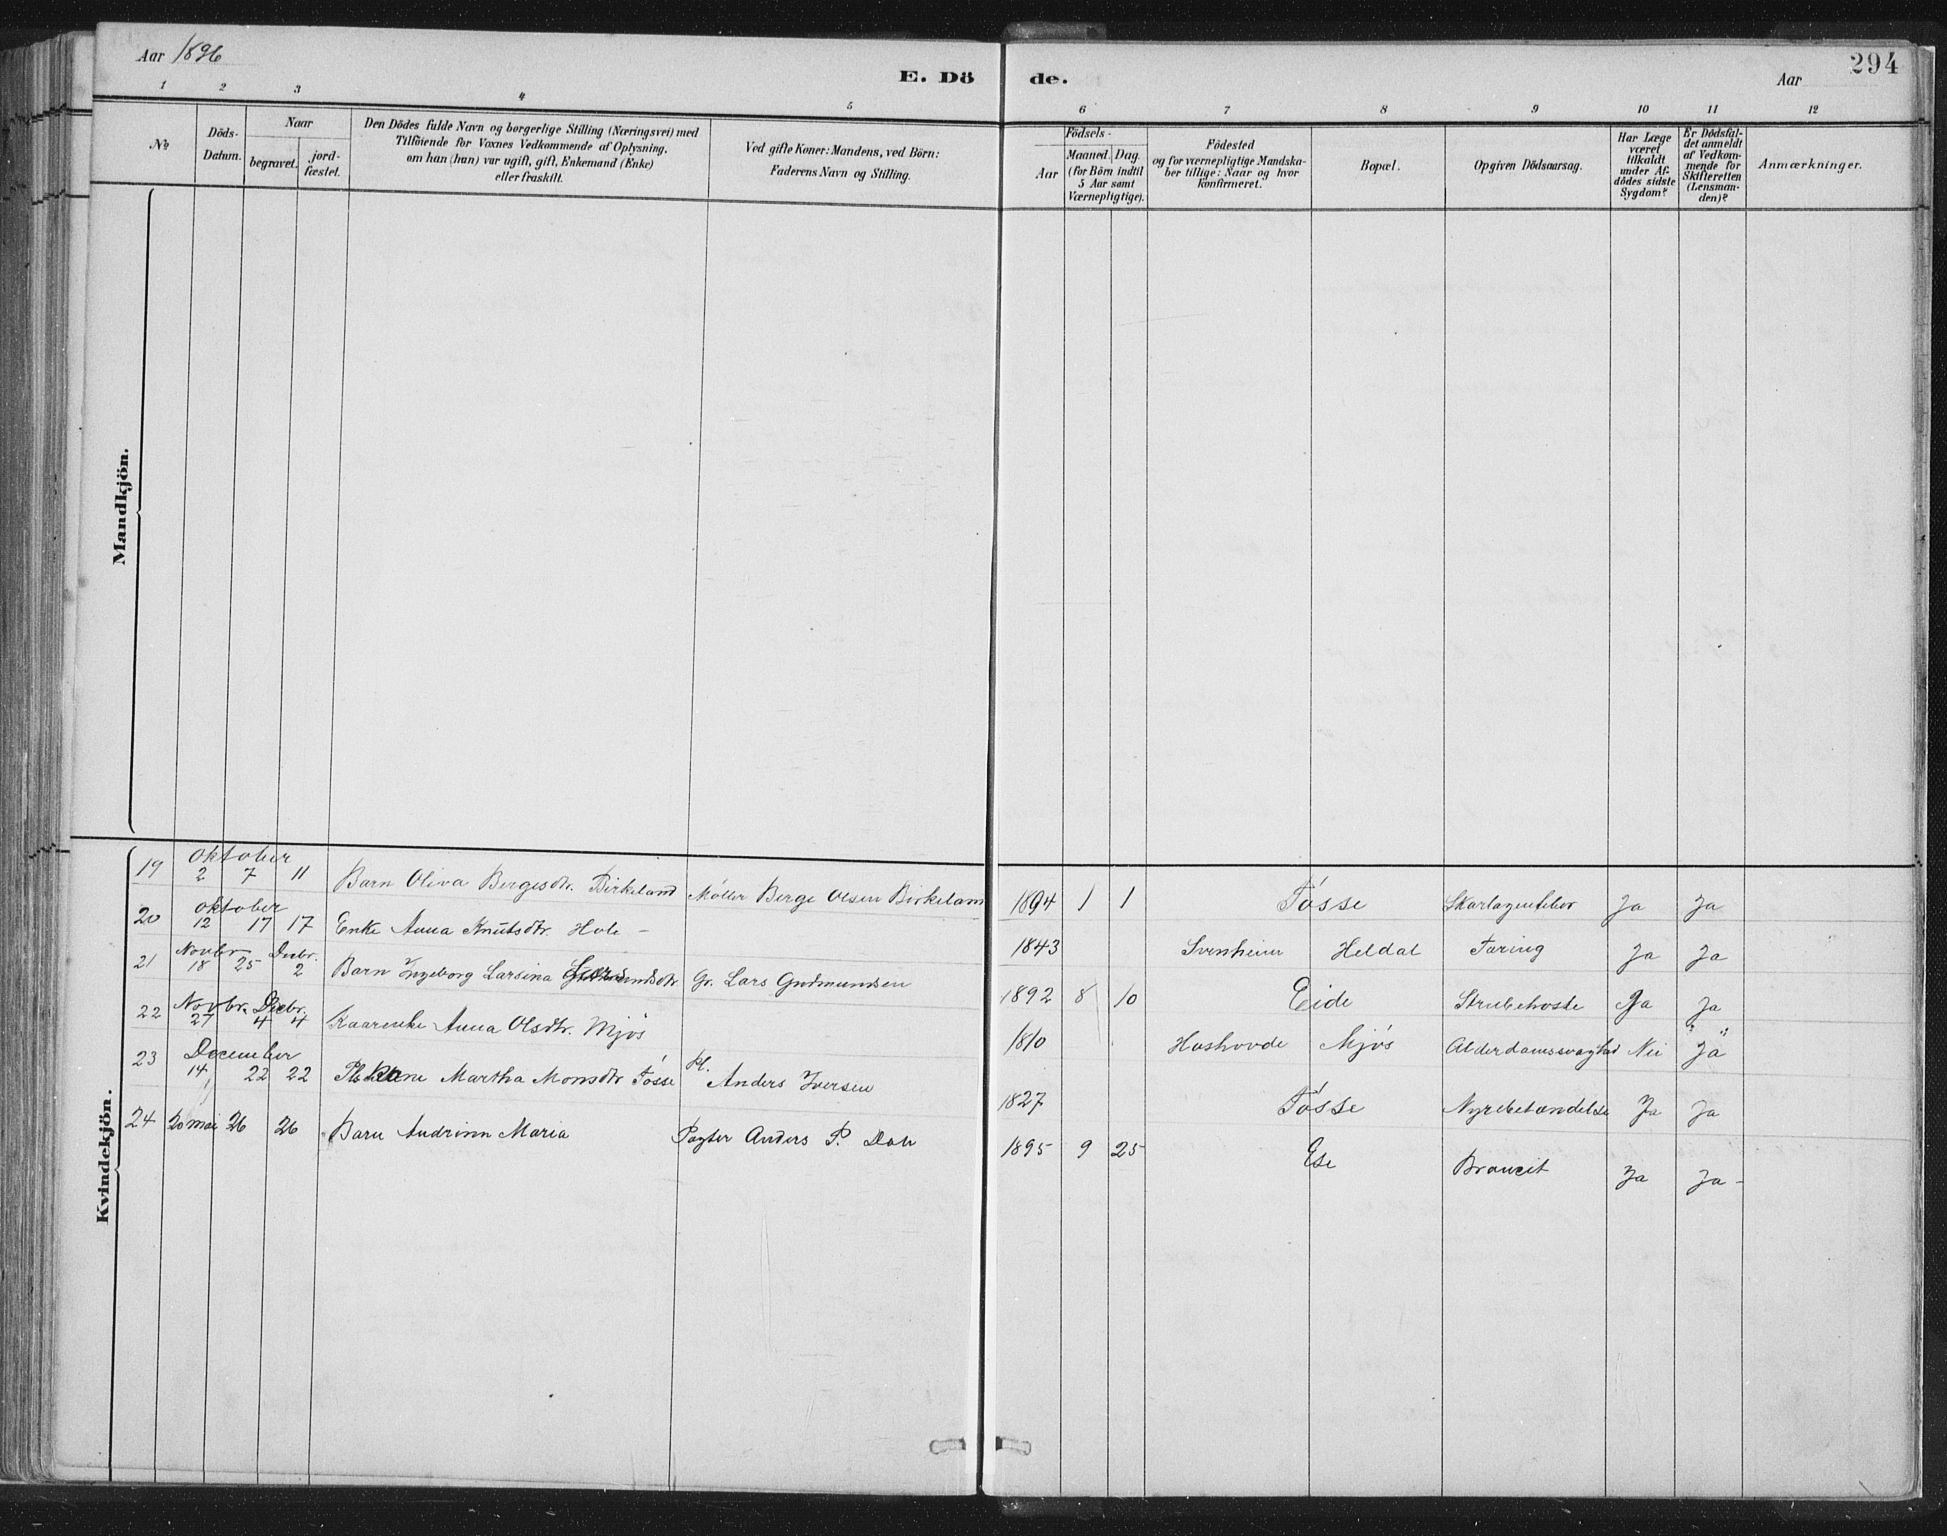 Aar 1896
E. Dö de.
Aar 294
1 2 3 4 5 6 7 8 9 10 11 12
No
Döds-Datum.
Naar
begravet.
jord-fæstet.
Den Dödes fulde Navn og borgerlige Stilling (Næringsvei) med
Tilföiende for Voxnes Vedkommende af Oplysning,
om han (hun) var ugift, gift, Enkemand (Enke)
eller fraskilt.
Ved gifte Koner: Mandens, ved Börn:
Faderens Navn og Stilling.
Födsels-
Aar
Maaned. Dag.
(for Börn indtil
5 Aar samt
Værnepligtige).
Födested
og for værnepligtige Mandska-
ber tillige: Naar og hvor
konfirmeret.
Bopæl.
Opgiven Dödsaarsag.
Har Læge
været
tilkaldt
under Af-
dödes sidste
Sygdom?
Er Dödsfal-
det anmeldt
af Vedkom-
mende for
Skifteretten
(Lensman-
den)?
Anmærkninger.
Mandkjön.
Kvindekjön.
19 Oktober 2 7 11 Barn Oliva Bergesdtr. Birkeland Möller Berge Olsen Birkeland 1894 1 1 Tösse Skarlagenfeber Ja Ja
20 Oktober 12 17 17 Enke Anna Knutsdtr. Hole - 1843 Svenheim Heldal Tæring Ja Ja
21 Novbr. 18 25 Decbr. 2 Barn Ingeborg Larsina Larsdtr Gr. Lars Gudmundsen 1892 8 10 Eide Strubehoste Ja Ja
22 Novbr. 27 Decbr. 4 4 Kaarenke Anna Olsdtr. Mjös 1810 Hushovde Mjös Alderdomssvaghed Nei Ja
23 December 14 22 22 Pl. Kone Martha Monsdtr Tösse Pl. Anders Iversen 1827 Tösse Nyrebetændelse Ja Ja
24 20 mai 26 26 Barn Andrinn Maria Pagter Anders P. Dale 1895 9 25 Ese Broncit Ja Ja -